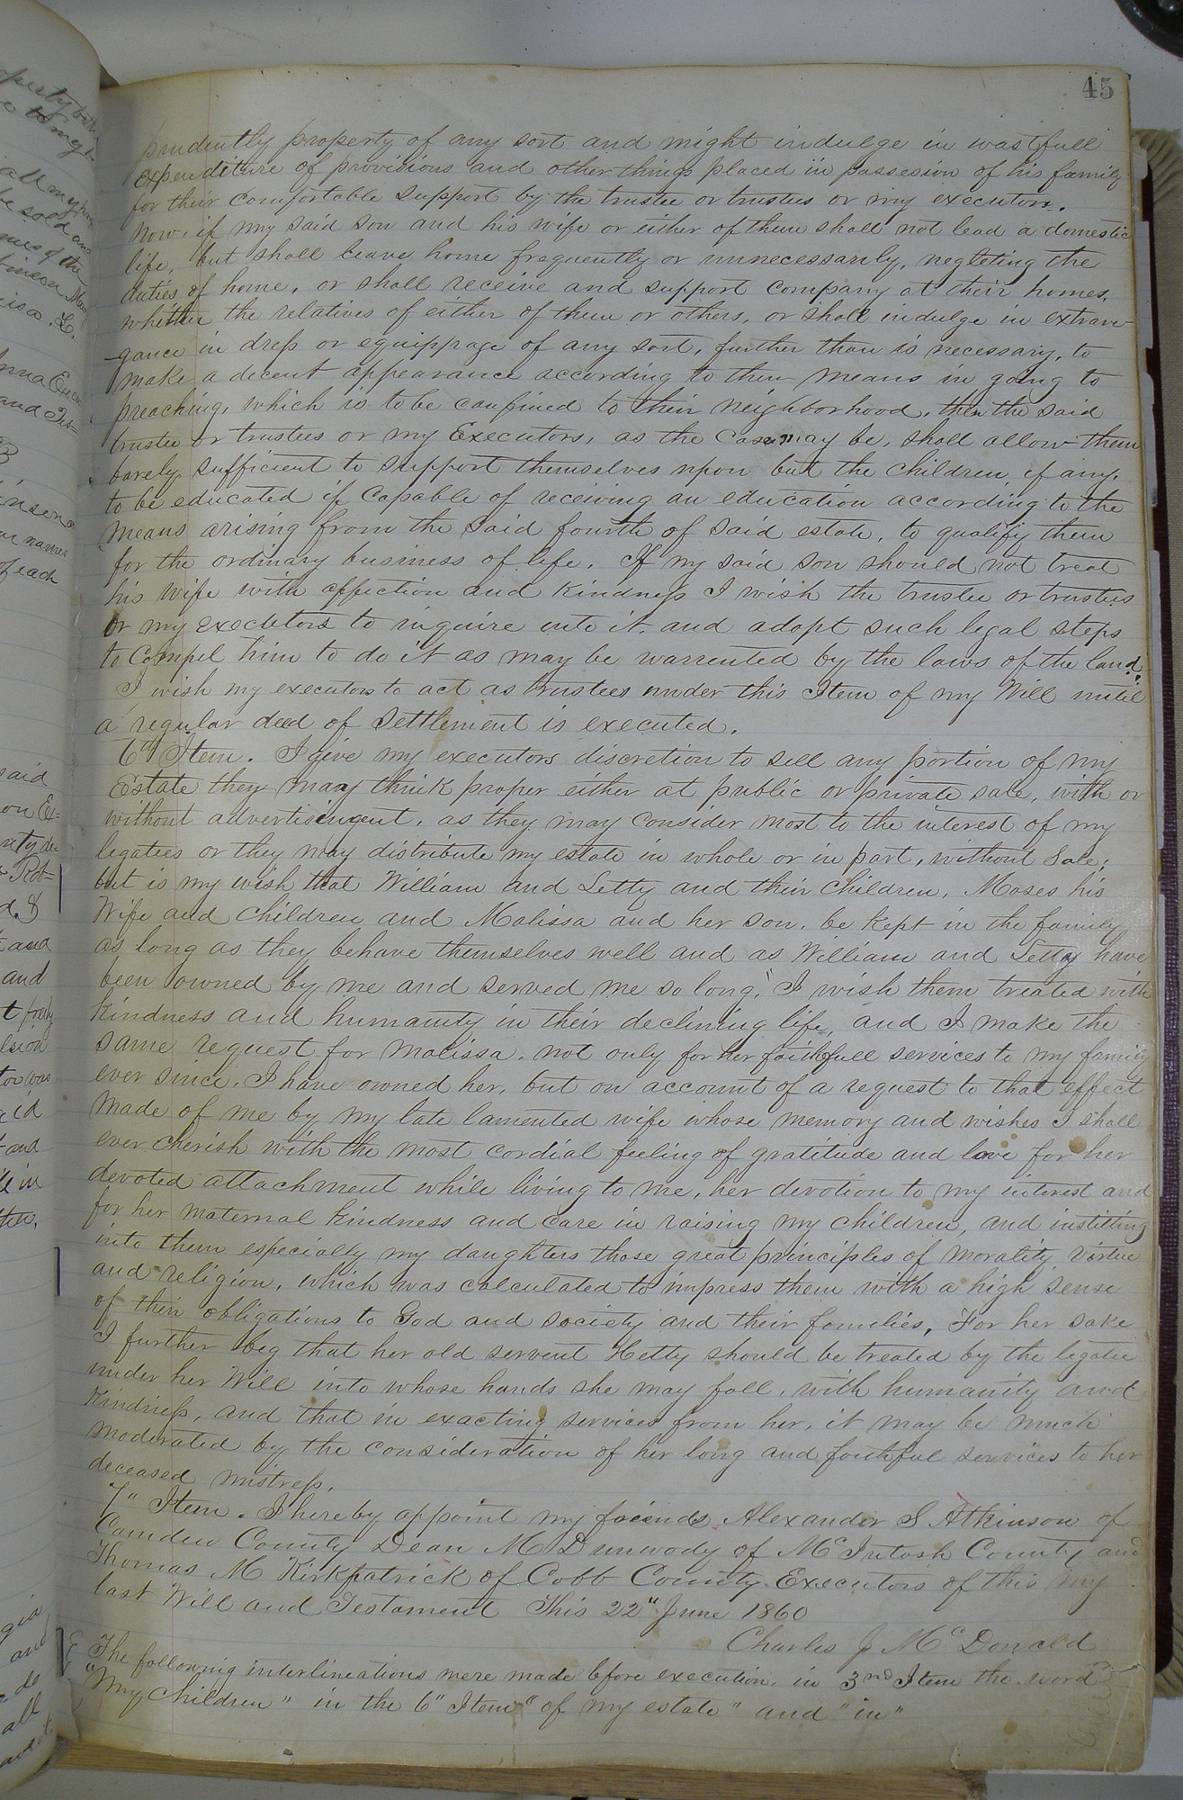 45
prudently property of any sort and might indulge in wastfull
expenditure of provisions and other things placed in possession of his family
for their comfortable support by the trustee or trustees or my executors.
Now if my said son and his wife or either of them shall not lead a domestic
life, but shall leave home frequently or unnecessarily, negleting the
duties of home, or shall receive and support company at their homes,
whether the relatives of either of them or others, or shall indulge in extrava-
gance in dress or equippage of any sort, further than is necessary, to
make a decent appearance according to their means in going to
preaching, which is to be confined to their neighborhood, then the said
trustee or trustees or my Executors, as the case may be, shall allow them
barely sufficient to support themselves upon but the children, if any,
to be educated if capable of receiving an education according to the
means arising from the said fourth of said estate, to qualify them
for the ordinary business of life. If my said son should not treat
his wife with affection and kindness I wish the trustee or trustees
or my executors to inquire into it, and adopt such legal steps
to Compel him to do it as may be warrented by the laws of the land.
I wish my executors to act as trustees under this Item of my Will until
a regular deed of Settlement is executed.
6th Item. I give my executors discretion to sell any portion of my
Estate they may think proper either at public or private sale, with or
without advertisingent, as they may consider most to the interest of my
legatees or they may distribute my estate in whole or in part, without Sale;
but is my wish that William and Letty and their children, Moses his
Wife and children and Malissa and her son, be kept in the family
as long as they behave themselves well and as William and Letty have
been owned by me and served me so long, I wish them treated with
kindness and humanity in their declining life, and I make the
same request for Malissa, not only for her faithfull services to my family
ever since I have owned her, but on account of a request to that effect
made of me by my late lamented wife whose memory and wishes I shall
ever cherish with the most cordial feeling of gratitude and love for her
devoted attachment while living to me, her devotion to my interest and
for her maternal kindness and care in raising my children, and instilling
into them especially my daughters those great principles of morality, virtue
and religion, which was calculated to impress them with a high sense
of their obligations to God and society and their families. For her sake
I further beg that her old servent Hetty should be treated by the legatee
under her Will into whose hands she may fall, with humanity and
Kindness, and that in exacting services from her, it may be much
moderated by the consideration of her long and faithful services to her
deceased mistress.
7" Item. I hereby appoint my friends Alexander S Atkinson of
Camden County Dean M Dunwody of McIntosh County and
Thomas M Kirkpatrick of Cobb County Executors of this my
last Will and Testament This 22" June 1860
Charles J McDonald
The following interlineations were made before execution, in 3rd Item the word
"My Children" in the 6" Item "of my estate" and "in"